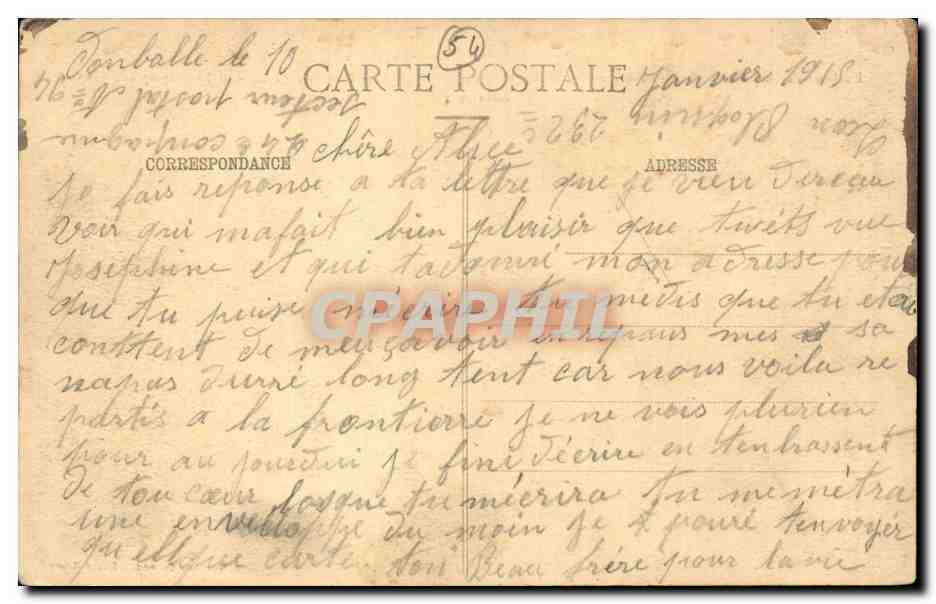 Tonballe le 10 Janvier 1915
54
CARTE POSTALE
secteur postal N= 92
Léon 292 =
24e compagnie
chère Alice
CORRESPONDANCE
ADRESSE
je fais reponse a ta lettre que je vien dereceu
voir qui mafait bien plaisir que twéts vue
Joséphine et qui tadonné mon adresse pou
que tu puise mécrire tu medis que tu etai
constent de meusçavoir enrepaus mes sa
napas durré long tent car nous voila re
partis a la frontierre je ne vois plurien
pour au jourdui je fini décrire en tenbrassent
de tou cœur losque tu mécrira tu memétra
une enveloppe du moin je pouré tenvoyér
quellque carte ton Beau frére pour la vie
CPAPHIL